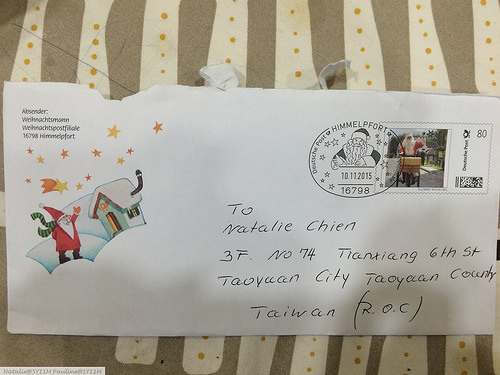 Absender:
Weihnachtsmann
Weihnachtspostfiliale
16798 Himmelpfort
Deutsche Post HIMMELPFORT
10.11.2015
16798
Deutsche Post
80
To
Natalie Chien
3F. No 74 Tianxiang 6th St
Taoyuan City Taoyuan County
Taiwan (R.O.C)
Natalie@5Y11M Pauline@1Y11M